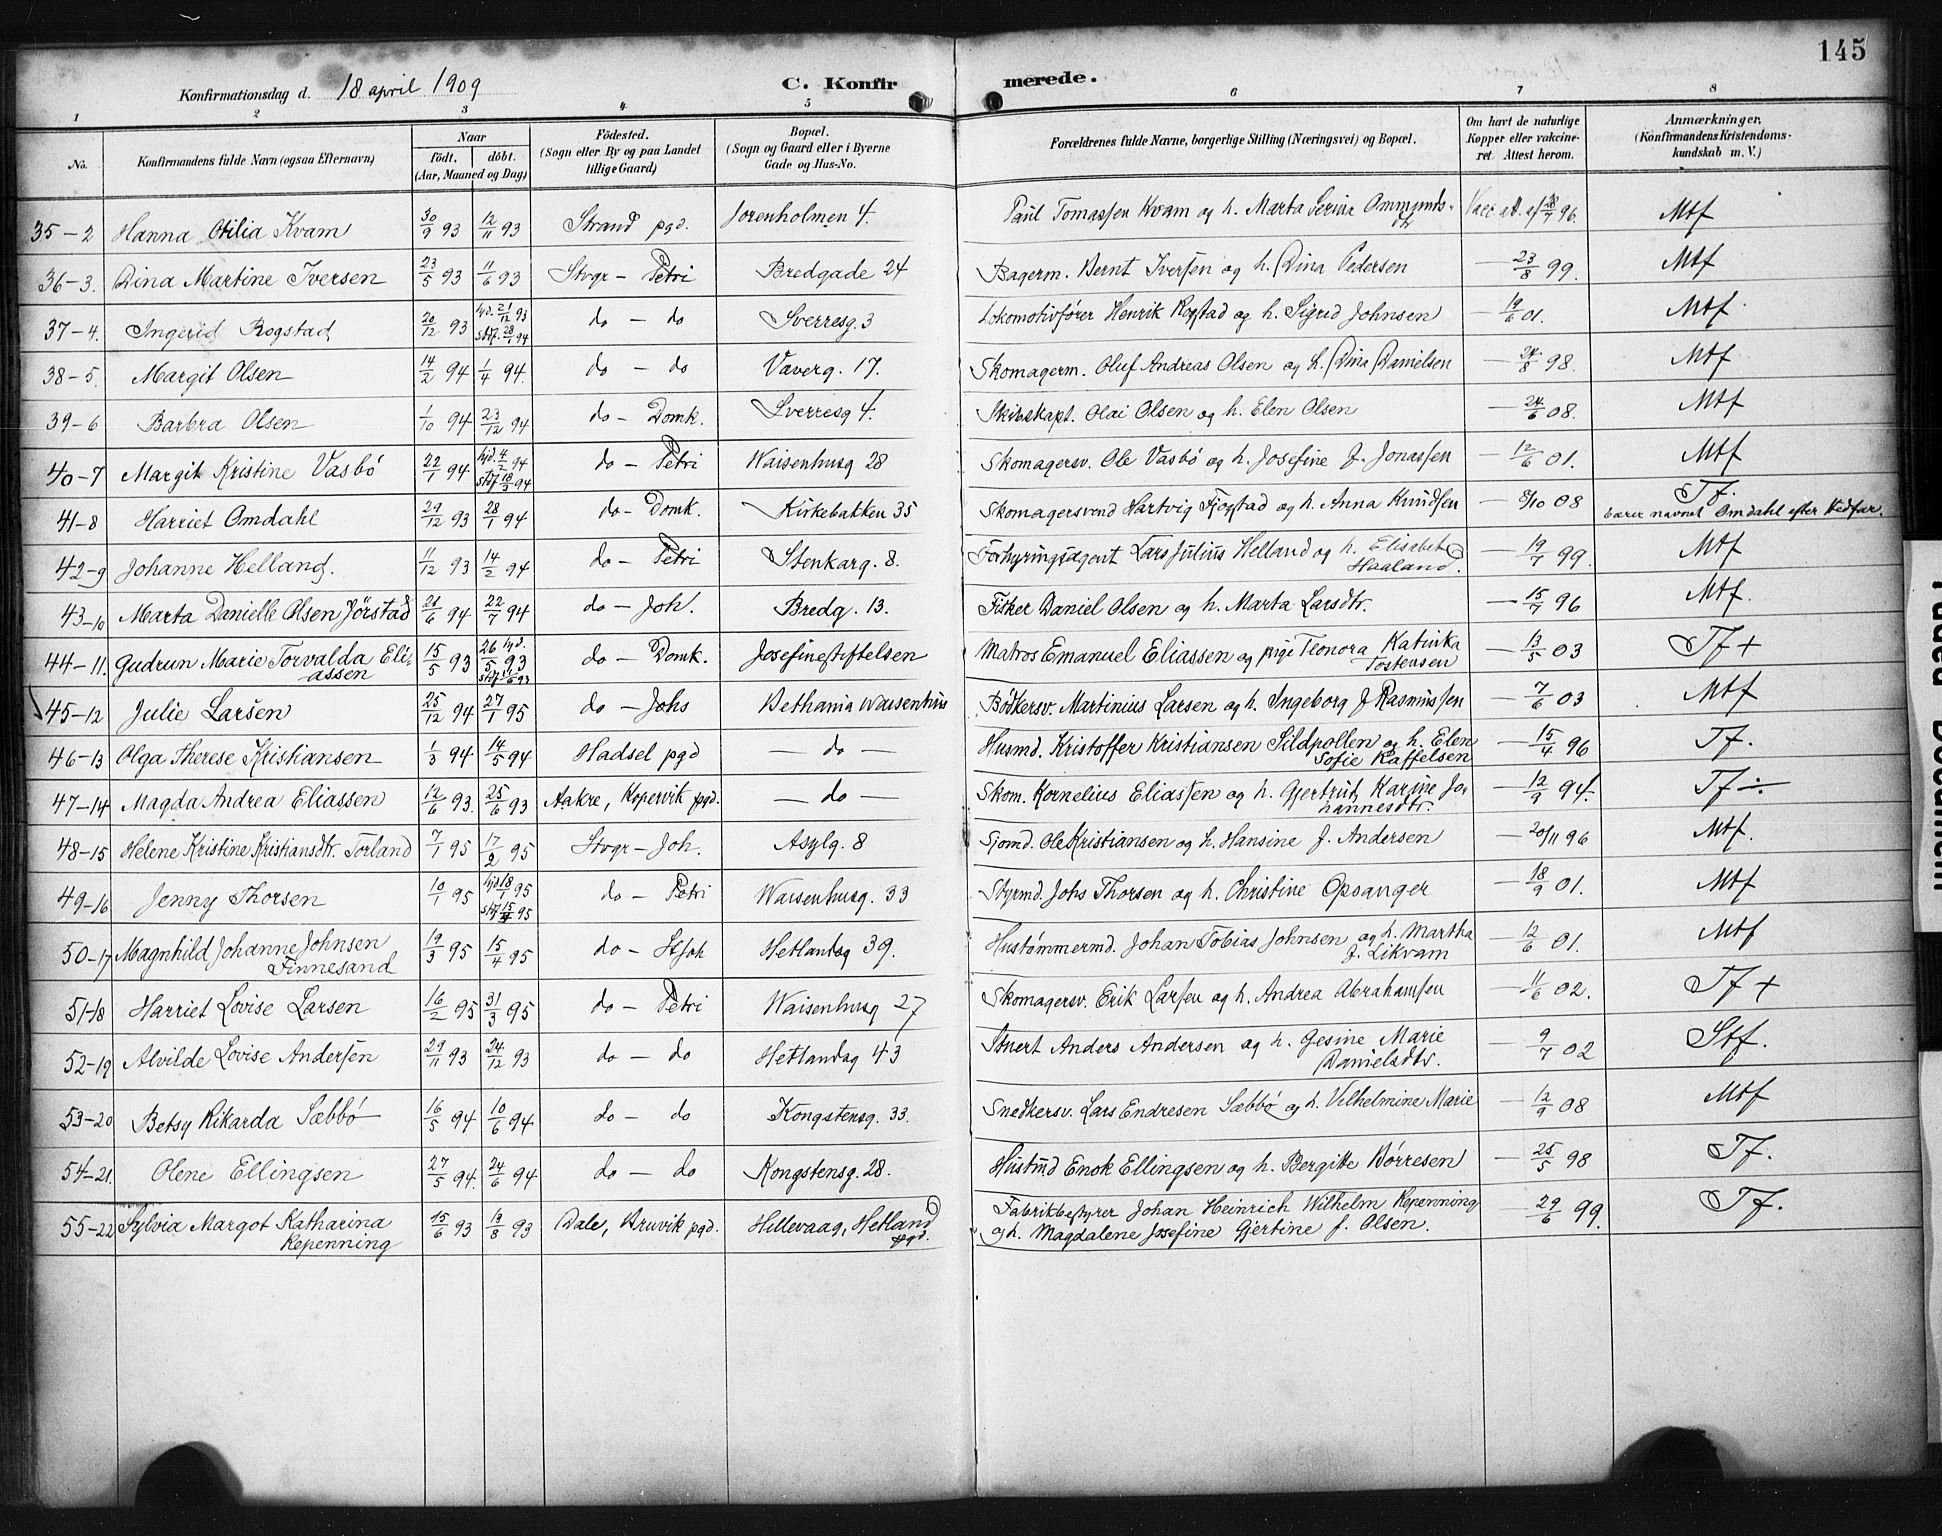 145
Konfirmationsdag d. 18 april 1909 C. Konfirmerede.
1 2 3 4 5 6 7 8
No. Konfirmandens fulde Navn (ogsaa Efternavn) Naar født. døbt. (Aar, Maaned og Dag) Fødested. (Sogn eller By og paa Landet tillige Gaard) Bopæl. (Sogn og Gaard eller i Byerne Gade og Hus-No. Forældrenes fulde Navne, borgerlige Stilling (Næringsvei) og Bopæl. Om havt de naturlige Kopper eller vakcineret Attest herom. Anmærkninger, (Konfirmandens Kristendomskundskab m. V.)
35-2 Hanna Otilia Kvam 30/9 93 12/11 93 Strand pgd. Jorenholmen 4. Paul Tomassen Kvam og h. Marta Serina Ommunds- Vacc att. af 28/7 96. Mtf
36-3. Dina Martine Iversen 23/5 93 11/6 93 Stvgr - Petri Bredgade 24 Bagerm. Bernt Iversen og h. Dina Pedersen — 23/8 99. Mtf
37-4. Ingerid Rogstad 20/12 93 hjd. 21/12 93 stdf. 28/1 94 do - do Sverresg. 3 Lokomotivfører Henrik Rogstad og h. Sigrid Johnsen — 19/6 01. Mtf
38-5. Margit Olsen 14/2 94 1/4 94. do - do Væverg. 17. Skomagerm. Oluf Andreas Olsen og h. Dina Danielsen — 24/8 98. Mtf
39-6 Barbra Olsen 1/10 94 23/12 94 do - Domk. Sverresg 4. Skibskapt. Olai Olsen og h. Elen Olsen — 24/6 08. Mtf
40-7 Margit Kristine Vasbø 22/1 94 hjd. 4/2 94 stdf 18/2 94 do - Petri Waisenhusg 28 Skomagersv. Ole Vasbø og h. Josefine f. Jonassen — 12/6 01. Mtf
41-8 Harriet Omdahl 29/12 93 28/1 94 do - Domk. Kirkebakken 35 Skomagersvend Hartvig Fjogstad og h. Anna Knudsen — 8/10 08 Tf.
bærer navnet Omdahl efter Stedfar.
42-9 Johanne Helland. 11/12 93 14/2 94 do - Petri Stenkarg. 8. Forhyringsagent Lars Julius Helland og h. Elisabet Haaland. — 19/7 99. Mtf
43-10 Marta Danielle Olsen Jørstad 21/6 94 22/7 94 do - Joh. Bredg. 13. Fisker Daniel Olsen og h. Marta Larsdtr. — 15/7 96 Mtf.
44-11. Gudrun Marie Torvalda Eliassen 15/5 93 26/5 93 hjd. stdf 93 do - Domk. Josefinestiftelsen Matros Emanuel Eliassen og pige Teonora Katinka Tostensen — 13/5 03 Tf +
45-12 Julie Larsen 25/12 94 27/1 95 do - Johs Bethania Waisenhus Bødkersv. Martinius Larsen og h. Ingeborg f Rasmussen — 7/6 03 Mtf
46-13 Olga Therese Kristiansen 1/3 94 14/5 94 Hadsel pgd — do — Husmd. Kristoffer Kristiansen Sildpollen og h. Elen Sofie Raffelsen — 15/4 96 Tf.
47-14 Magda Andrea Eliassen 12/6 93. 25/6 93 Aakre, Kopervik pgd. — do — Skom. Kornelius Eliassen og h. Gjertrud Karine Johannesdtr. — 12/9 94. Tf ÷
48-15 Helene Kristine Kristiansdtr. Torland 7/1 95 17/2 95 Stvgr - Joh. Asylg. 8 Sjømd. Ole Kristiansen og h. Hansine f. Andersen — 20/11 96 Mtf.
49-16 Jenny Thorsen 10/1 95 hjd 18/1 95 stdf 15/4 95 do - Petri Waisenhusg. 33 Styrmd. Johs Thorsen og h. Christine Opsanger — 18/9 01. Mtf
50-17 Magnhild Johanne Johnsen Finnesand 19/3 95 15/4 95 do - St Joh Hetlandsg 39. Hustømmermd. Johan Tobias Johnsen og h. Martha f. Likvam — 12/6 01. Mtf
51-18 Harriet Lovise Larsen 16/2 95 31/3 95 do - Petri Waisenhusg 27 Skomagersv. Erik Larsen og h. Andrea Abrahamsen — 11/6 02. Tf +
52-19 Alvilde Lovise Andersen 29/11 93 24/12 93 do - do Hetlandsg 43 Stuert Anders Andersen og h. Gesine Marie Danielsdtr. — 9/7 02 Stf.
53-20 Betsy Rikarda Sæbbø 16/5 94 10/6 94 do - do Kongstensg. 33. Snedkersv. Lars Endresen Sæbbø og h. Vilhelmine Marie — 12/9 08 Mtf
54-21. Olene Ellingsen 27/5 94. 24/6 94 do - do Kongstensg. 28. Hustmd Enok Ellingsen og h. Bergitte Børresen — 25/5 98 Tf.
55-22 Sylvia Margot Katharina Repenning 15/6 93 13/8 93 Dale, Bruvik pgd. Hillevaag, Hetland pgd. Fabrikbestyrer Johan Heinrich Wilhelm Repenning og h. Magdalene Josefine Gjertine f. Olsen. — 29/6 99. Tf.